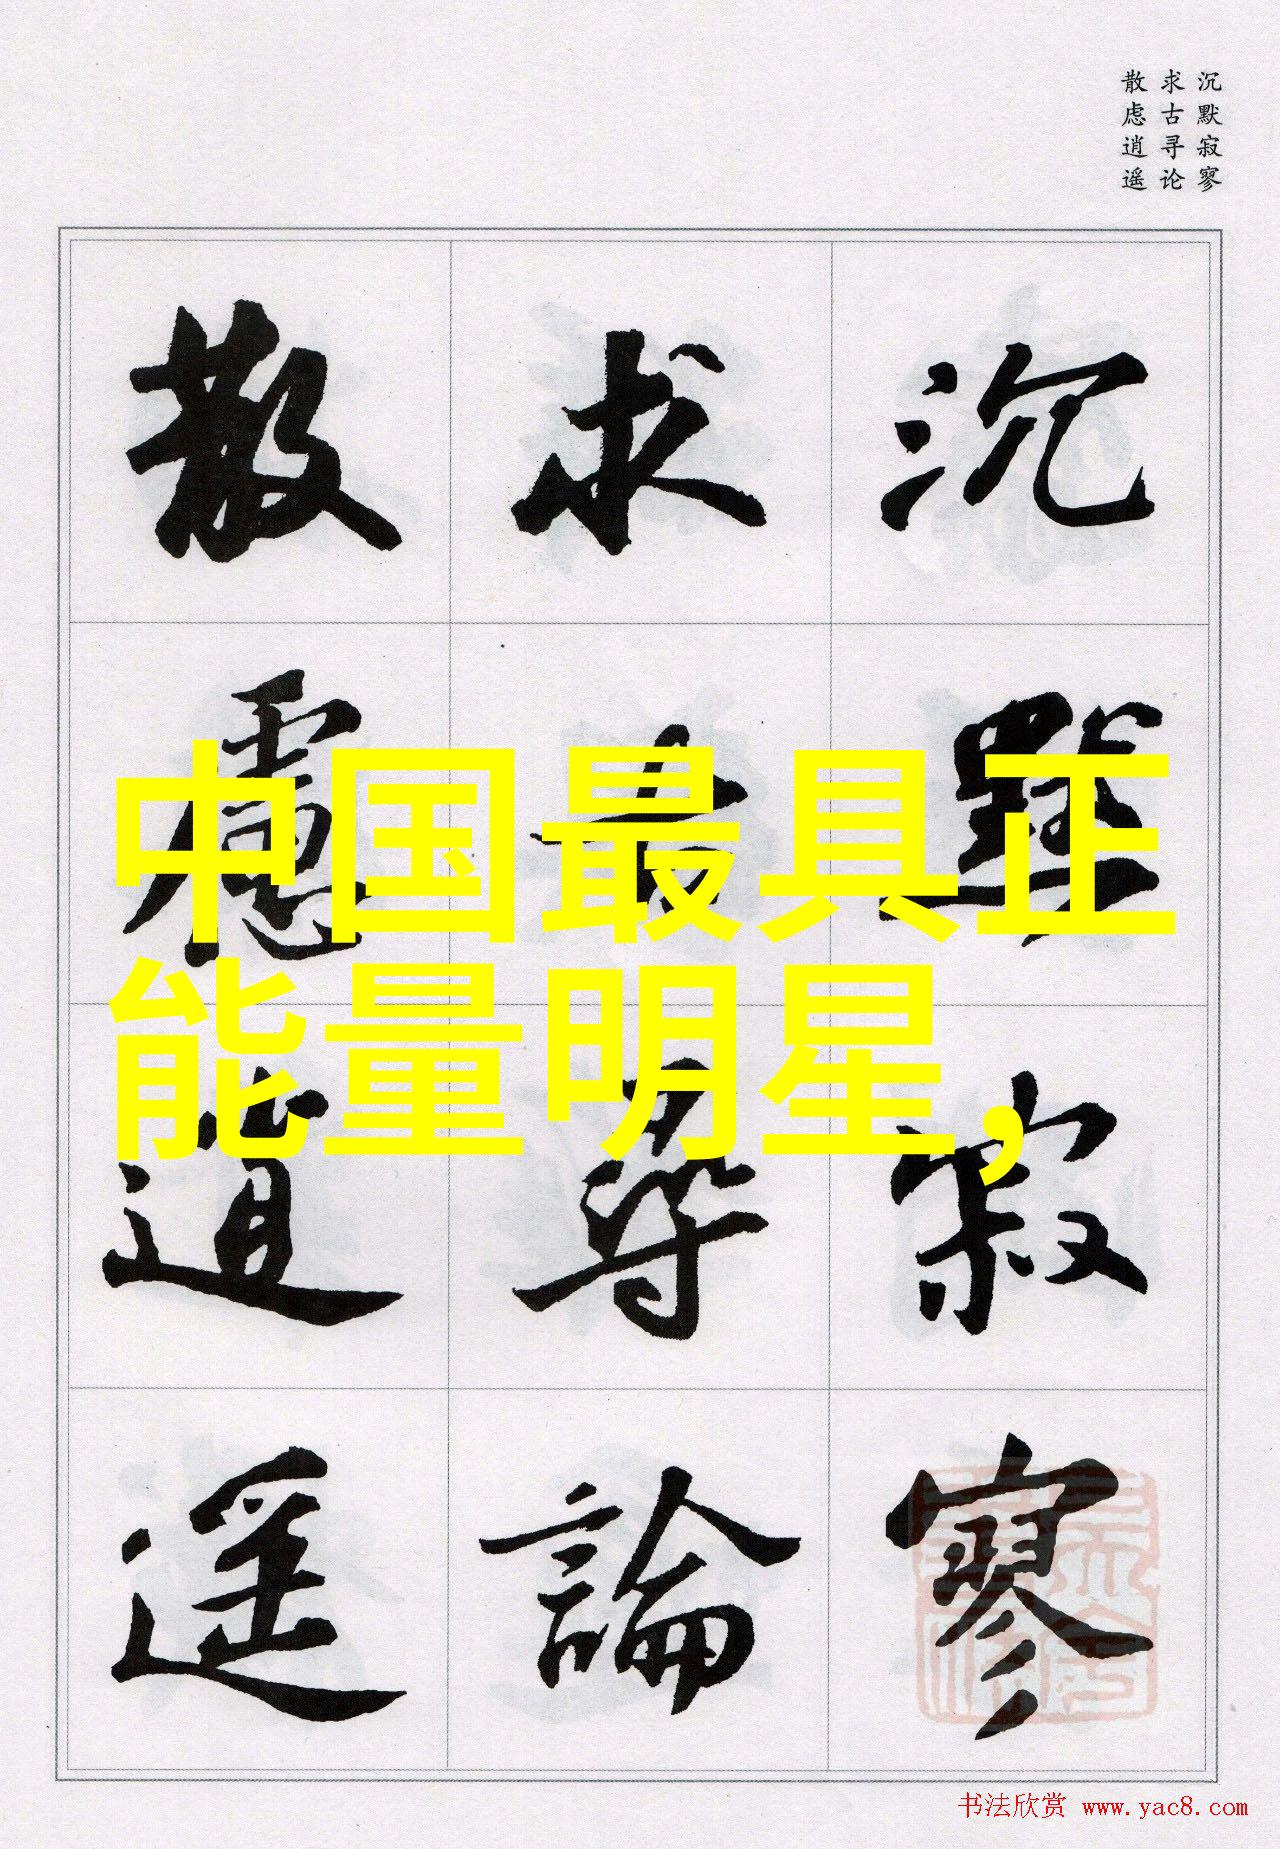 沉默寂寥
求古寻论
散虑逍遥
沉默寂寥
求古尋論
散慮逍遥
中国最具正
能量明星，
书法欣赏 www.yac8.com